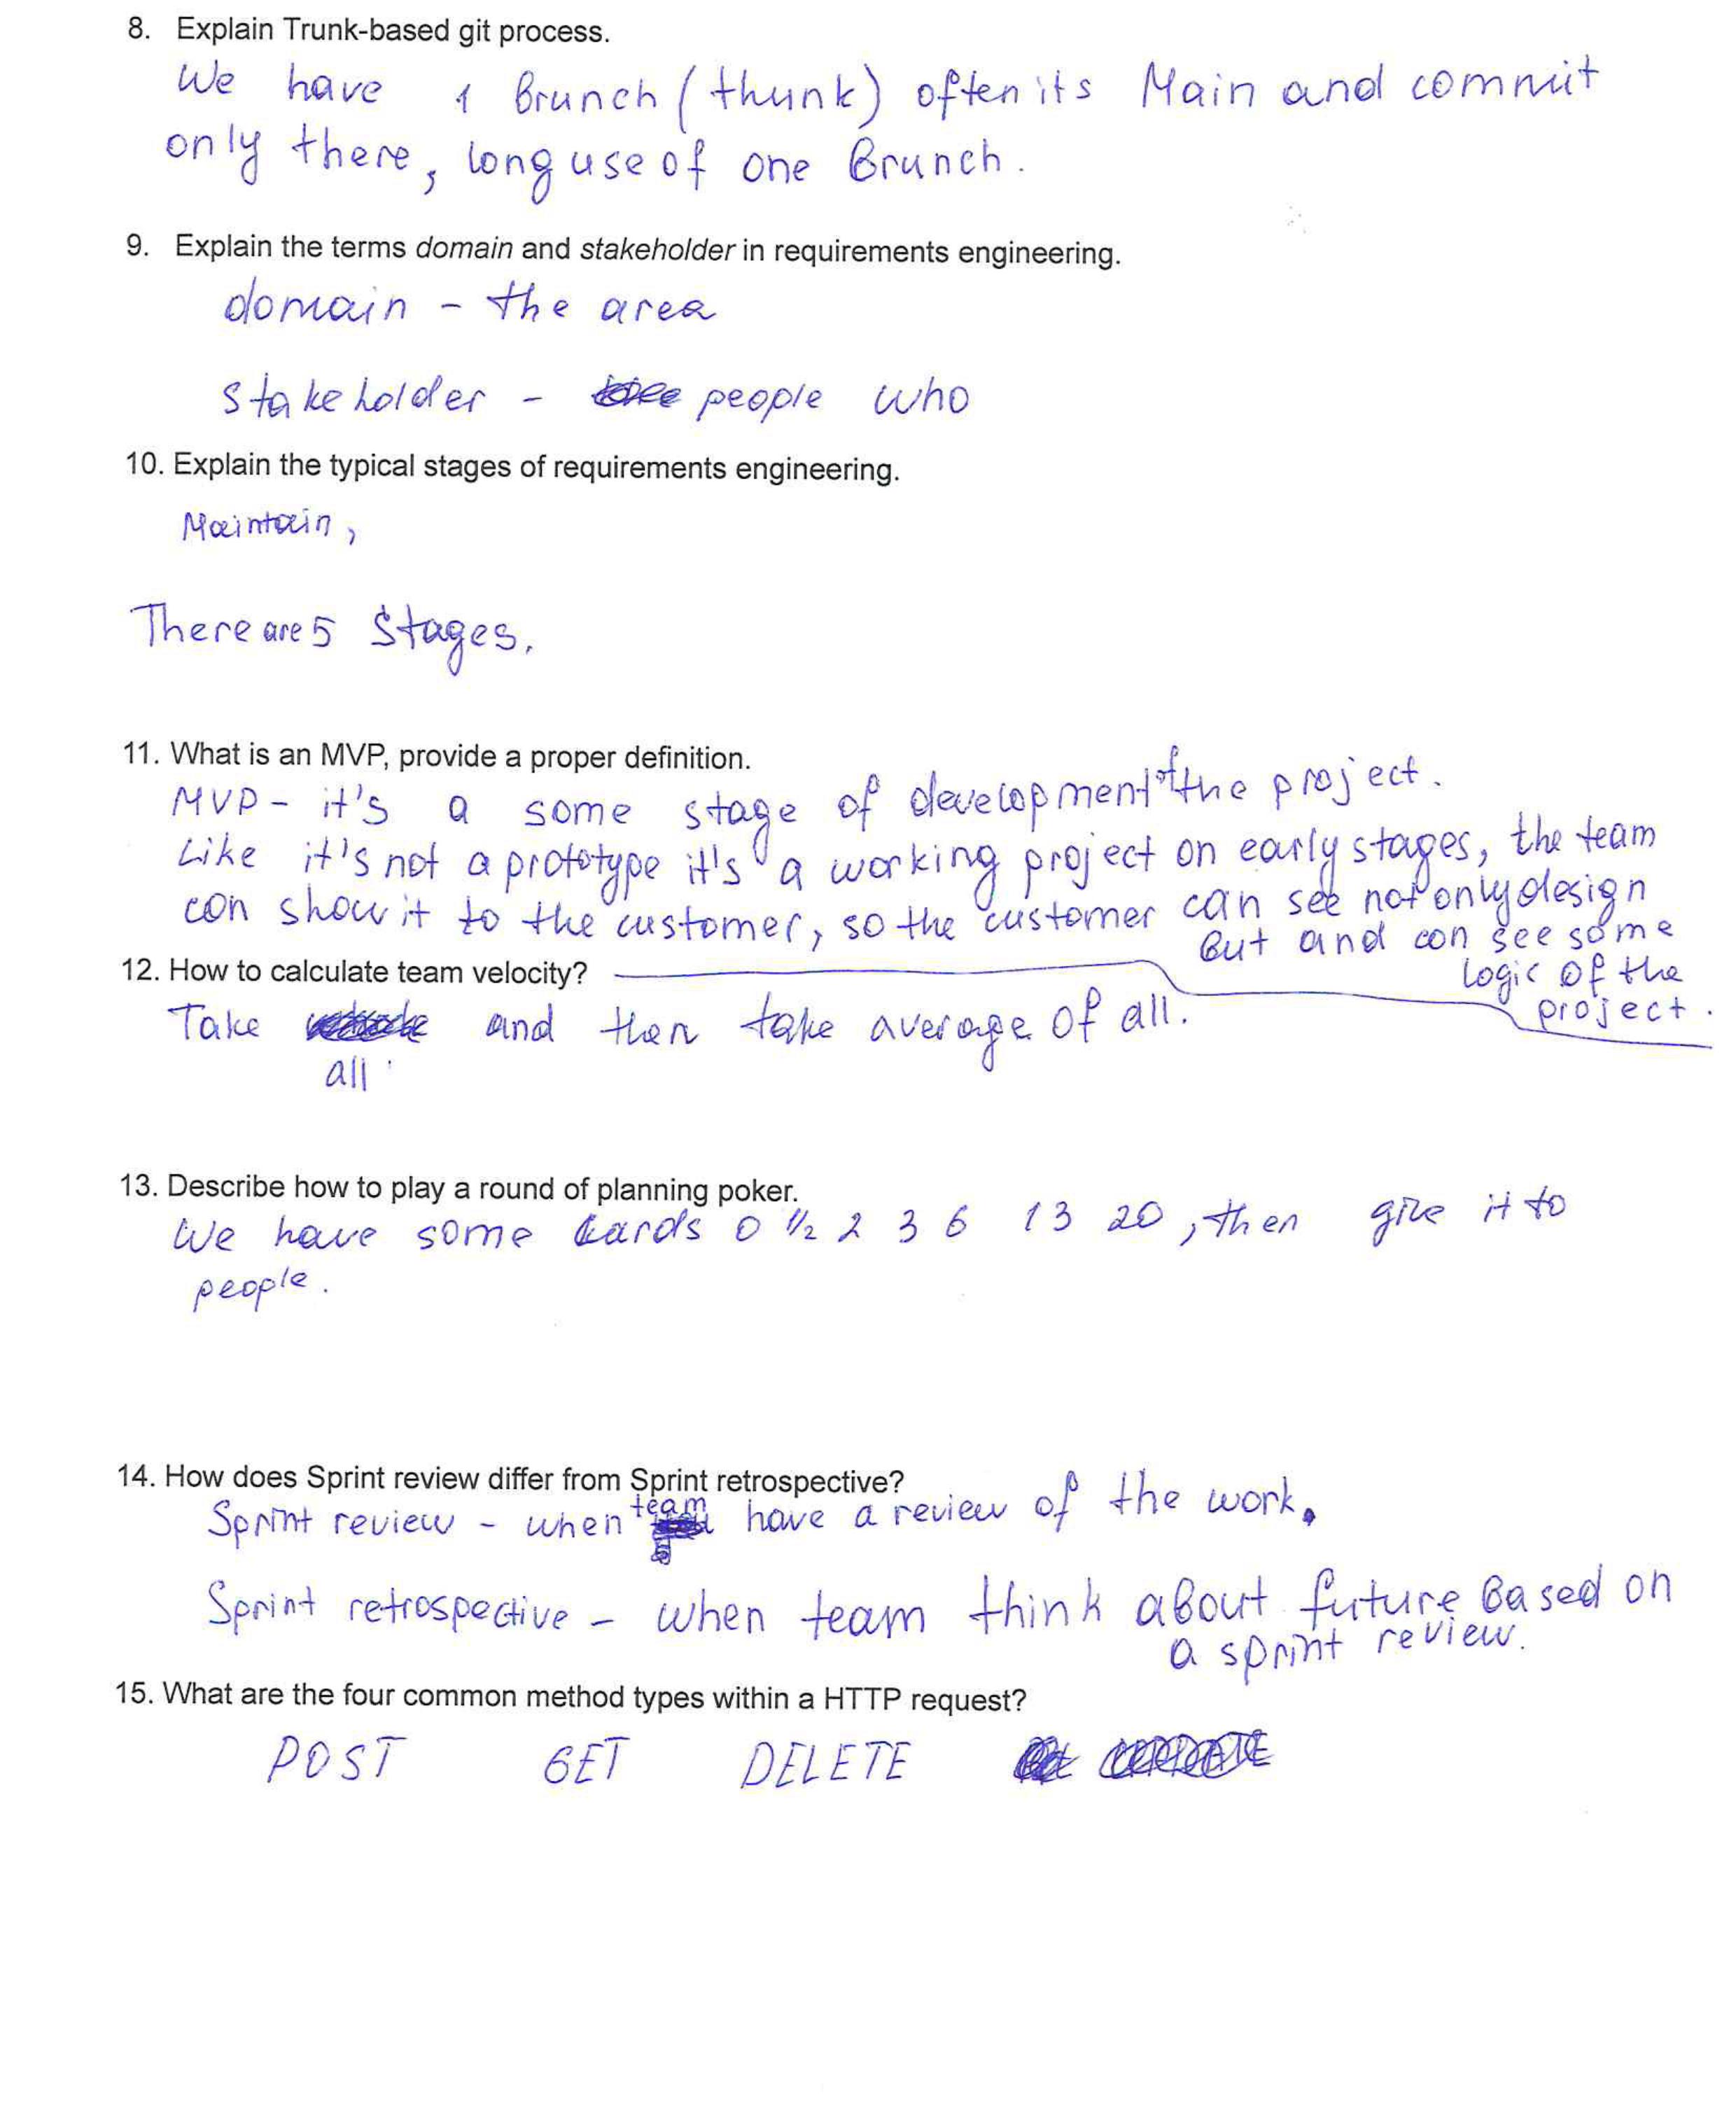 8. Explain Trunk-based git process.
We have 1 Brunch (thunk) often its Main and commit
only there, long use of one Brunch.
9. Explain the terms domain and stakeholder in requirements engineering.
domain - the area
stakeholder - people who
10. Explain the typical stages of requirements engineering.
Maintain,
There are 5 stages.
11. What is an MVP, provide a proper definition.
MVP - it's a some stage of development of the project.
Like it's not a prototype it's a working project on early stages, the team
con show it to the customer, so the customer can see not only design
But and con see some
logic of the
project.
12. How to calculate team velocity?
Take all and then take average of all.
13. Describe how to play a round of planning poker.
We have some cards 0 1/2 2 3 6 13 20, then give it to
people.
14. How does Sprint review differ from Sprint retrospective?
Sprint review - when team have a review of the work.
Sprint retrospective - when team think about future Based on
a sprint review.
15. What are the four common method types within a HTTP request?
POST GET DELETE